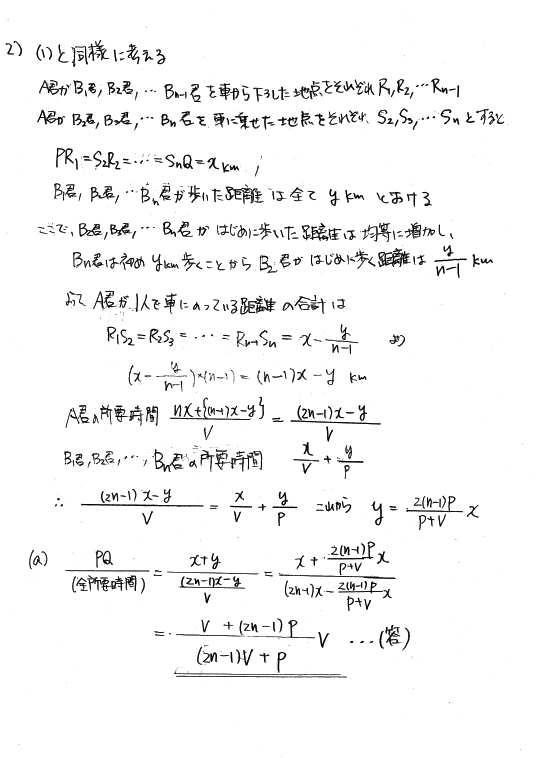 2) (1)と同様に考える
A君がB₁君, B₂君, … Bₙ₋₁君を車から下ろした地点をそれぞれR₁, R₂, … Rₙ₋₁
A君がB₂君, B₃君, … Bₙ君を車に乗せた地点をそれぞれ S₂, S₃, … Sₙとすると
PR₁ = S₂R₂ = … = SₙQ = x km ,
B₁君, B₂君, … Bₙ君が歩いた距離は全て y km とおける
ここで, B₂君, B₃君, … Bₙ君がはじめに歩いた距離は均等に増加し,
Bₙ君は初め y km歩くことから B₂君がはじめに歩く距離は y/(n-1) km
よって A君が1人で車にのっている距離の合計は
R₁S₂ = R₂S₃ = … = Rₙ₋₁Sₙ = x - y/(n-1) より
(x - y/(n-1))×(n-1) = (n-1)x - y km
A君の所要時間 (nx+{(n-1)x-y})/V = ((2n-1)x-y)/V
B₁君, B₂君, …, Bₙ君の所要時間 x/V + y/P
∴ ((2n-1)x-y)/V = x/V + y/P これから y = (2(n-1)P)/(P+V) x
(a) PQ/(全所要時間) = (x+y)/(((2n-1)x-y)/V) = (x + (2(n-1)P)/(P+V) x)/((2n-1)x - (2(n-1)P)/(P+V) x)
= (V + (2n-1)P)/((2n-1)V + P) V …(答)